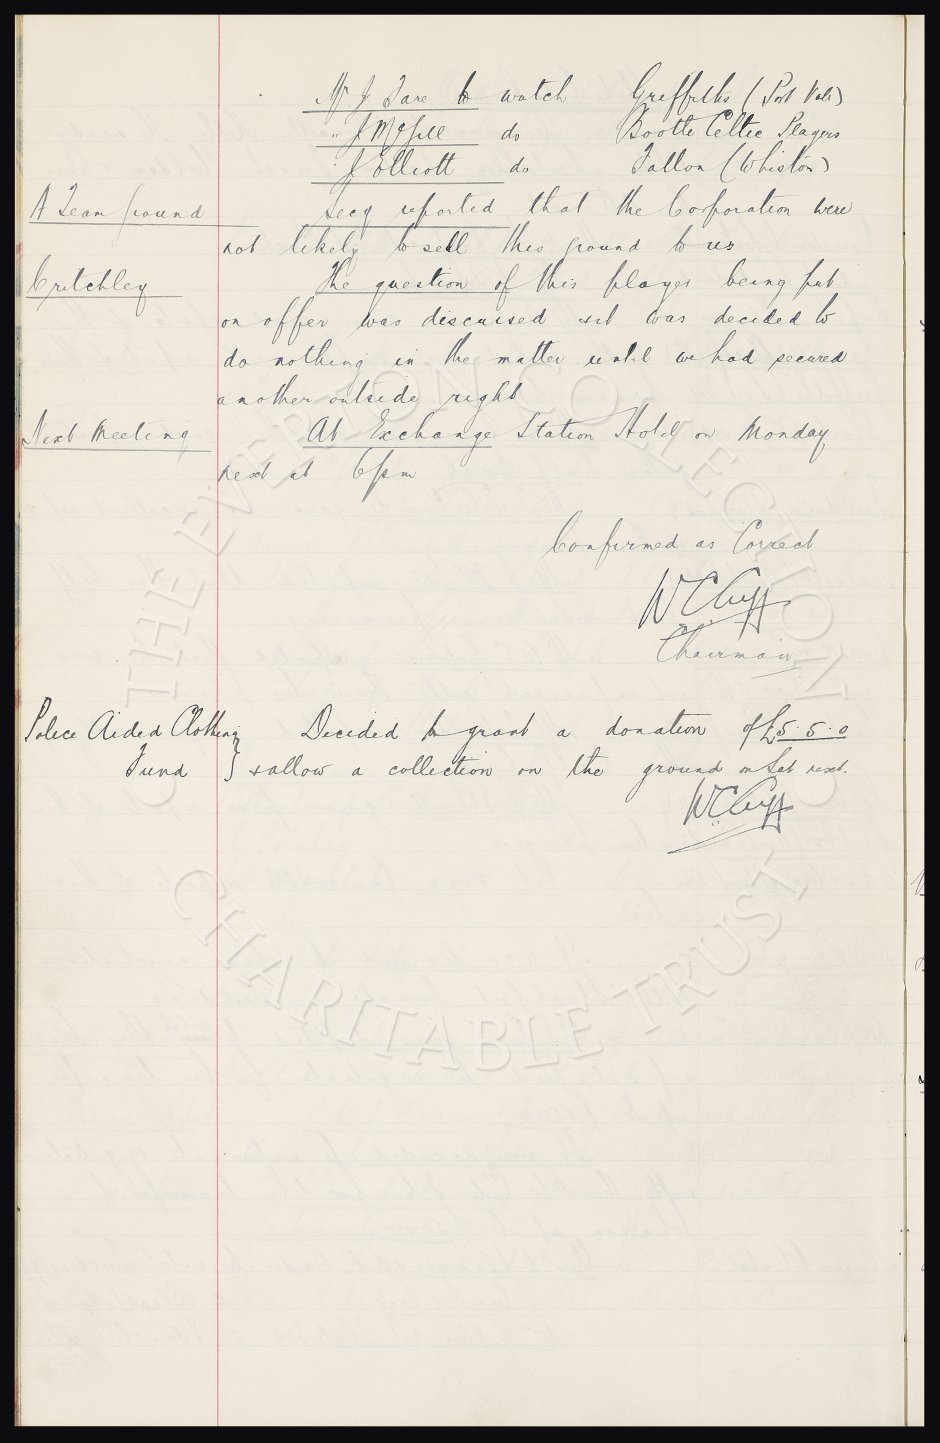 Mr J Fare to watch Griffiths (Port Vale)
" J McGill do Bootle Celtic Players
J Elliott do Fallon (Whiston)
A Team Ground Secy reported that the Corporation were
not likely to sell this ground to us
Critchley The question of this player being put
on offer was discussed & it was decided to
do nothing in the matter until we had secured
another outside right
Next Meeting At Exchange Station Hotel on Monday
next at 6pm
Confirmed as Correct
W C Cuff
Chairman
Police Aided Clothing Decided to grant a donation of £5.5.0
Fund } & allow a collection on the ground on Sat next.
W C Cuff
© THE EVERTON COLLECTION
CHARITABLE TRUST